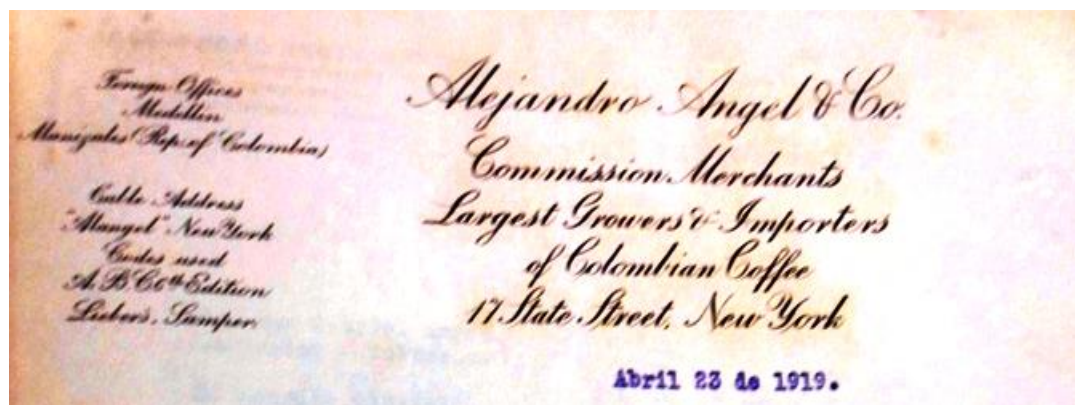 Foreign Offices
Medellin
Manizales (Rep. of Colombia)
Cable Address
"Alangel" New York
Codes used
A. B. C. 6th Edition
Liebers, Samper
Alejandro Angel & Co.
Commission Merchants
Largest Growers & Importers
of Colombian Coffee
17 State Street, New York
Abril 23 de 1919.